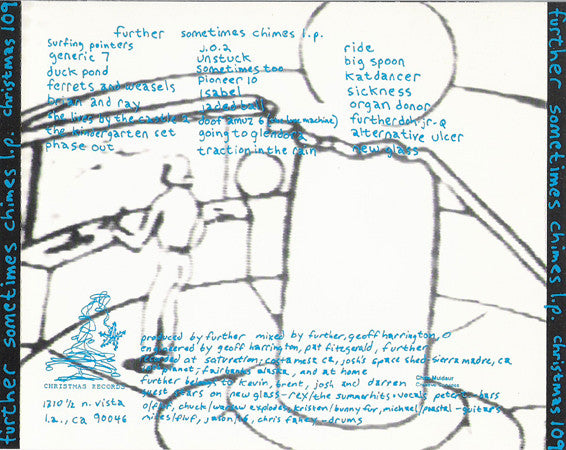 further sometimes chimes l.p.
surfing pointers
generic 7
duck pond
ferrets and weasels
brian and ray
she lives by the castle 2
the kindergarten set
phase out
J.O.2
unstuck
sometimes too
pioneer 10
isabel
jaded ball
doof amuz 6 machine)
going to glendora
traction in the rain
ride
big spoon
katdancer
sickness
organ donor
furtherdch jr-q
alternative ulcer
new glass
produced by further mixed by further, geoff harrington, O
engineered by geoff harrington, pat fitzgerald, further
recorded at saturation; costa mesa ca, josh's space shed; sierra madre, ca
planet; fairbanks alaska, and at home
further kevin, brent, josh and darren
guest stars on new glass - rex/the summerhits - vocals, peter - bass
o/fluf, chuck/ explodes, kristen/bunny fur, michael - guitars
chris fahey - drums
Chris Muldaur
CHRISTMAS RECORDS
1310 1/2 n. vista
l.a., ca 90046
further sometimes chimes l.p. christmas 109
further sometimes chimes l.p. christmas 109